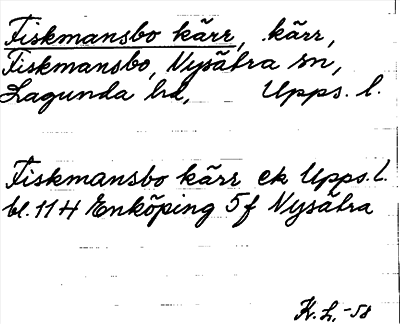 Fiskmansbo kärr, kärr,
Fiskmansbo, Nysätra sn,
Lagunda hd, Upps. l.
Fiskmansbo kärr ek Upps. l.
bl. 114 Enköping 5f Nysätra
K. L. -58